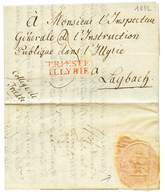 1812
A Monsieur l'Inspecteur
Générale de l'Instruction
Publique dans l'Illyrie
à
TRIESTE
ILLYRIE
Laybach
Trieste